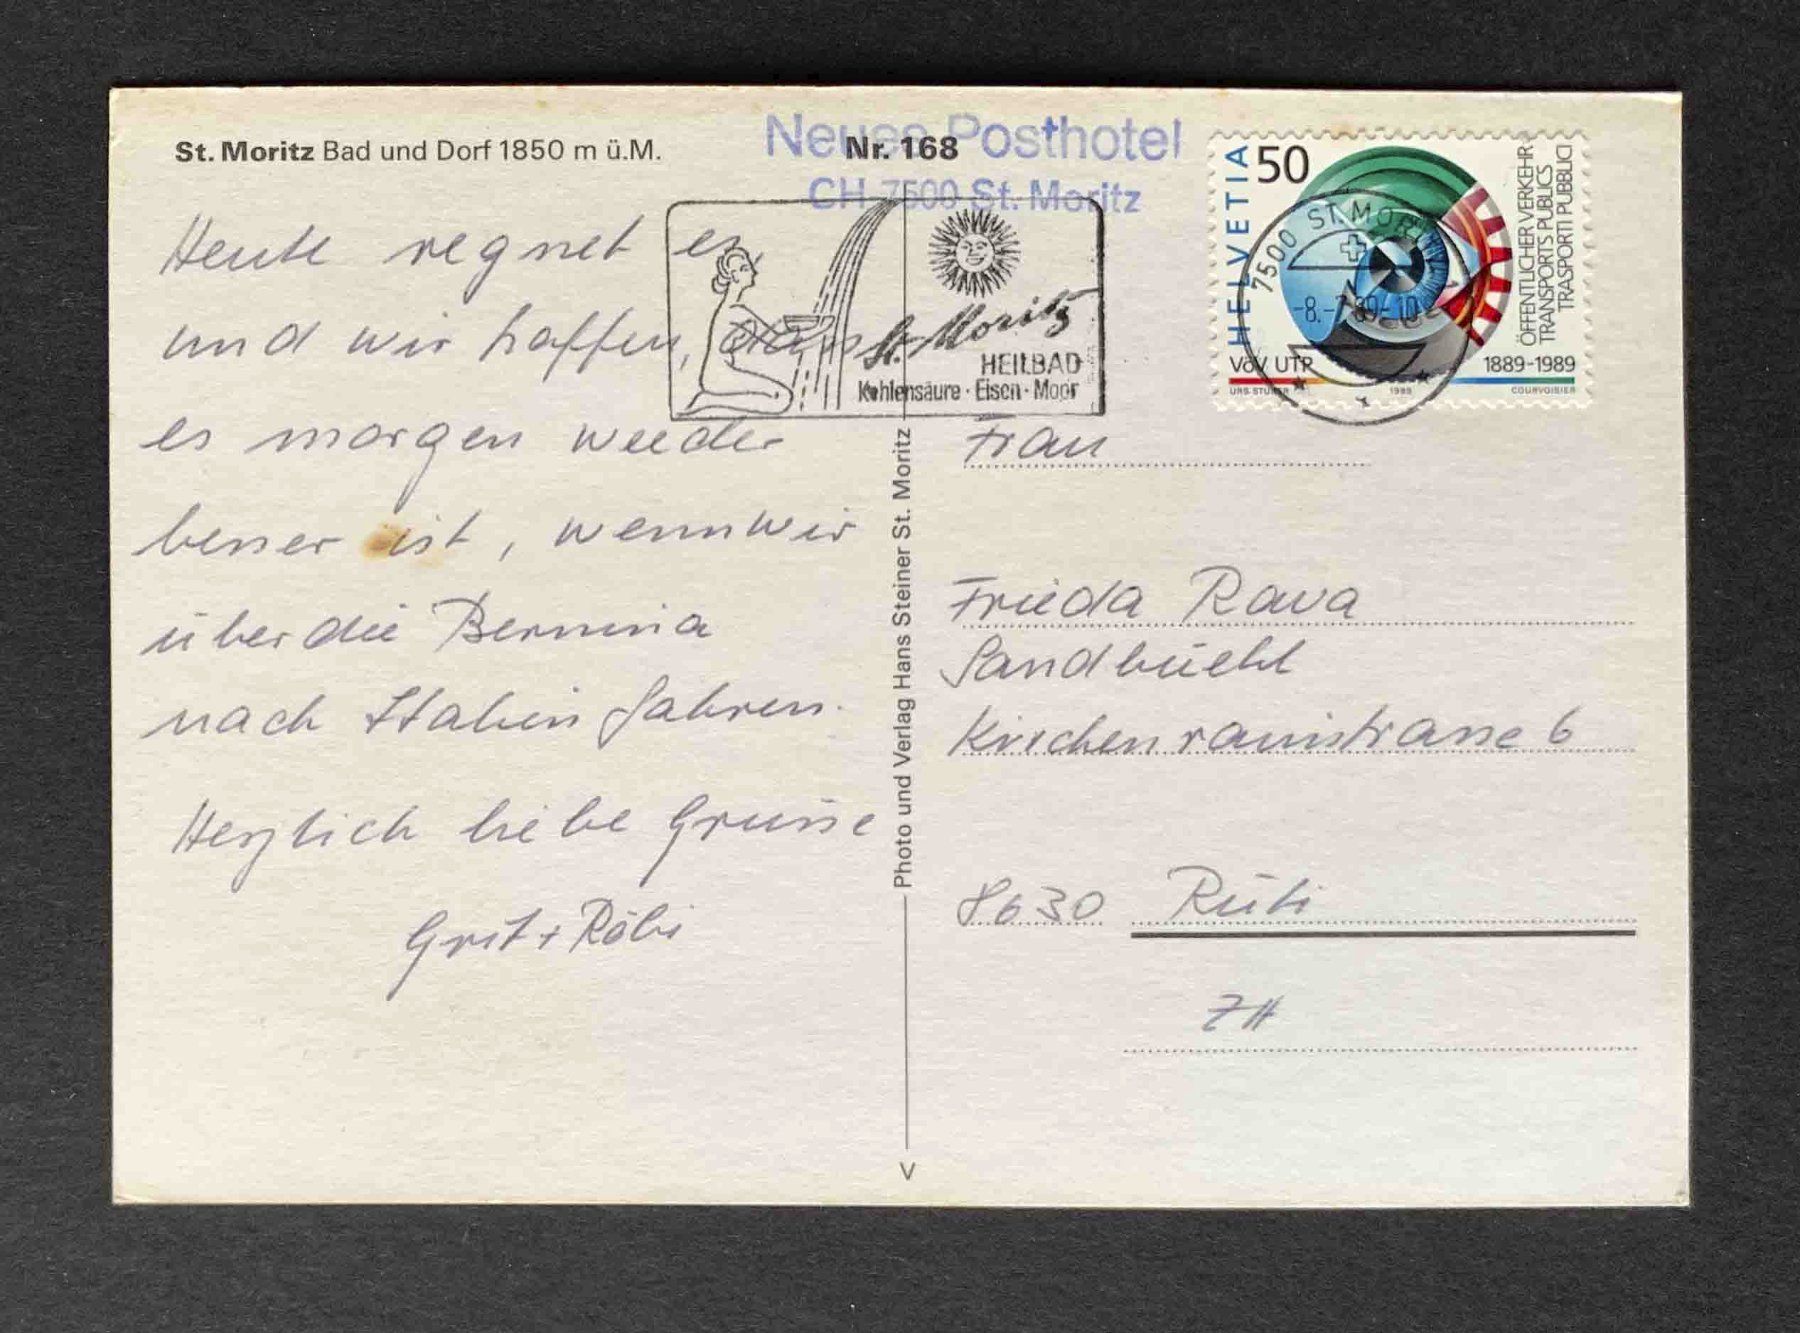 St. Moritz Bad und Dorf 1850 m ü.M.
Nr. 168
Neues Posthotel
CH-7500 St. Moritz
Heute regnet es
und wir hoffen, dass
es morgen wieder
besser ist, wenn wir
über die Bernina
nach Italien fahren.
Herzlich liebe Grüsse
Grit + Röbi
St. Moritz
HEILBAD
Kohlensäure · Eisen · Moor
Photo und Verlag Hans Steiner St. Moritz
HELVETIA
50
ÖFFENTLICHER VERKEHR
TRANSPORTS PUBLICS
TRASPORTI PUBBLICI
VöV UTP
1889-1989
URS STUDER
1989
COURVOISIER
7500 ST. MORITZ 1
-8.-7.89-10
Frau
Frieda Rava
Sandbüehl
Kirchenrainstrasse 6
8630 Rüti
ZH